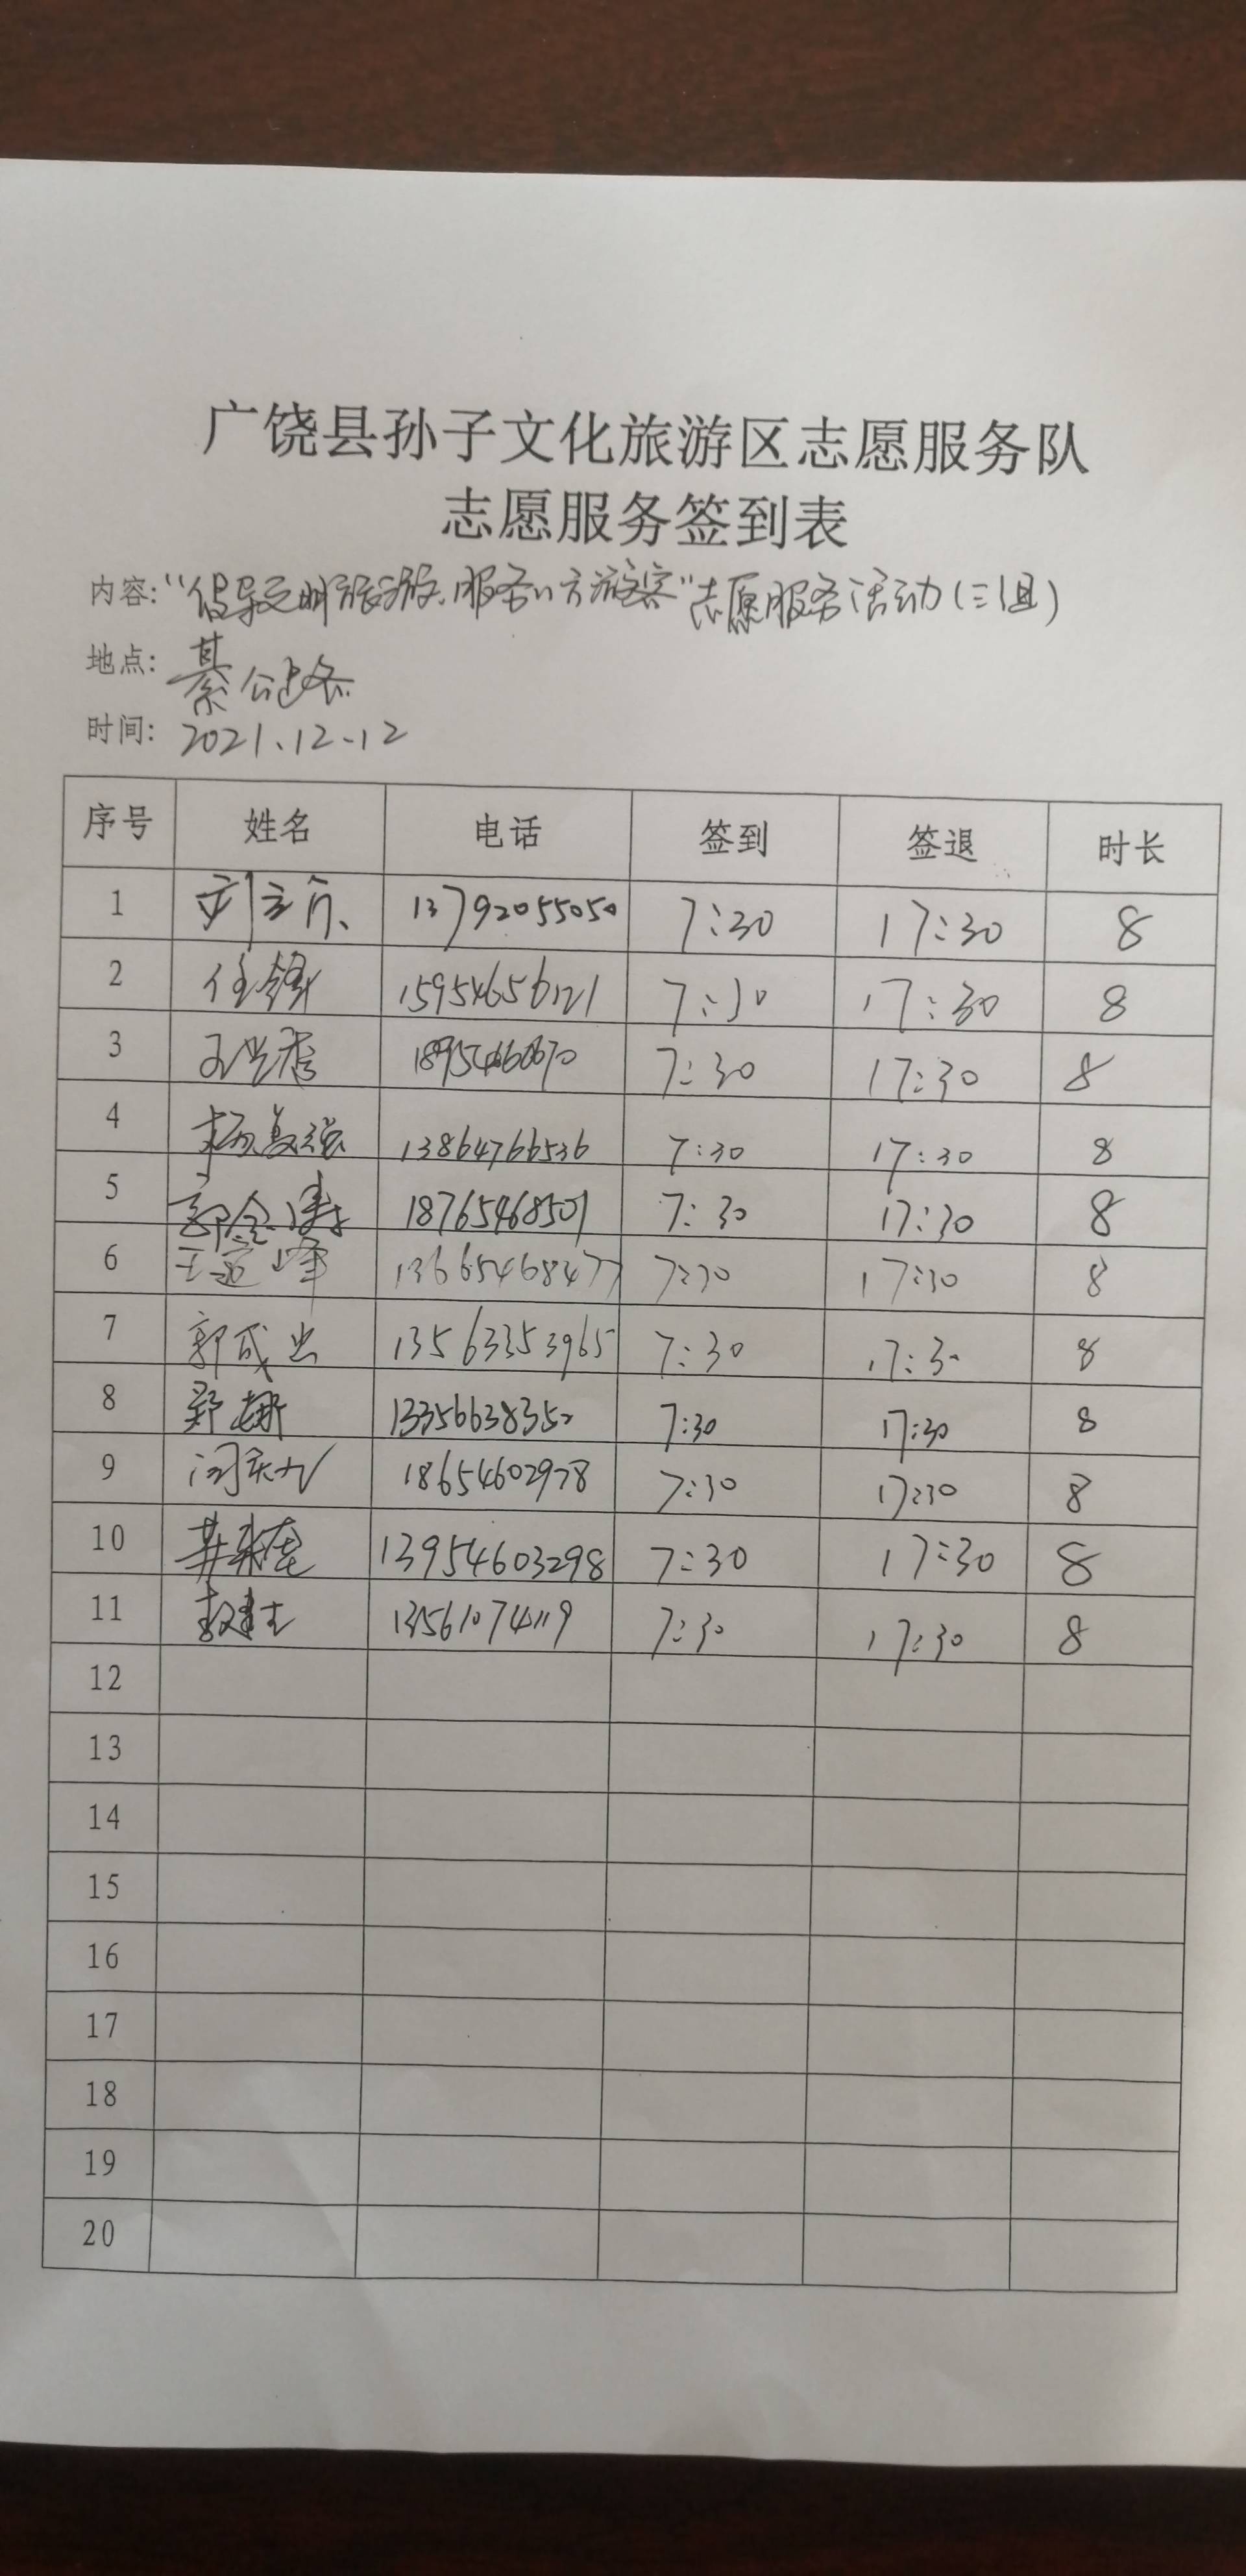 广饶县孙子文化旅游区志愿服务队
志愿服务签到表
内容:“倡导文明旅游、服务八方游客”志愿服务活动(三组)
地点:綦公路
时间:2021.12.12
序号 姓名 电话 签到 签退 时长
1 13792055050 7:30 17:30 8
2 15954656121 7:30 17:30 8
3 7:30 17:30 8
4 13864766536 7:30 17:30 8
5 18765468501 7:30 17:30 8
6 13665468477 7:30 17:30 8
7 郭成 13563353965 7:30 17:30 8
8 郭娜 13356638352 7:30 17:30 8
9 18654602978 7:30 17:30 8
10 13954603298 7:30 17:30 8
11 13561074119 7:30 17:30 8
12
13
14
15
16
17
18
19
20